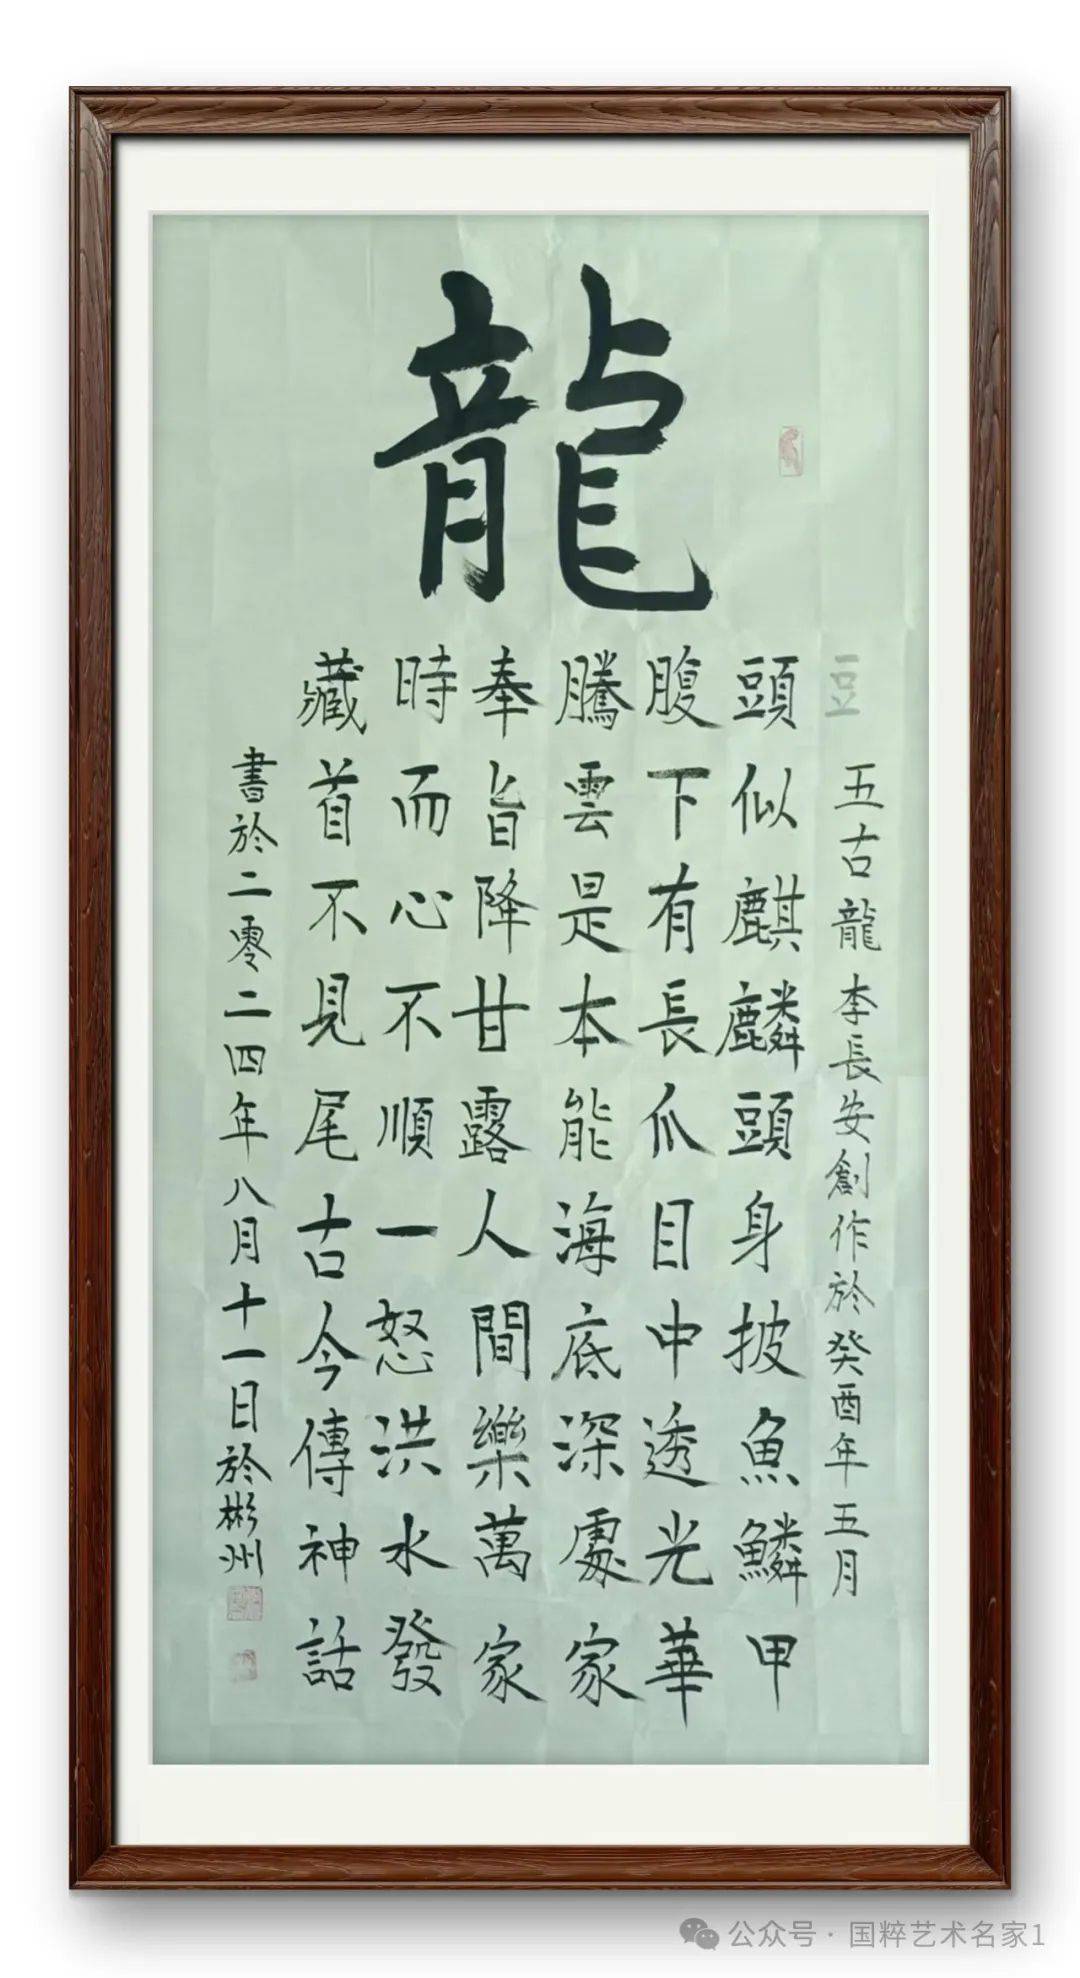 龍
豆
五古龍 李長安創作於癸酉年五月
頭似麒麟頭身披魚鱗甲
腹下有長爪目中透光華
騰雲是本能海底深處家
奉旨降甘露人間樂萬家
時而心不順一怒洪水發
藏首不見尾古今傳神話
書於二零二四年八月十一日於彬州
公众号 · 国粹艺术名家1